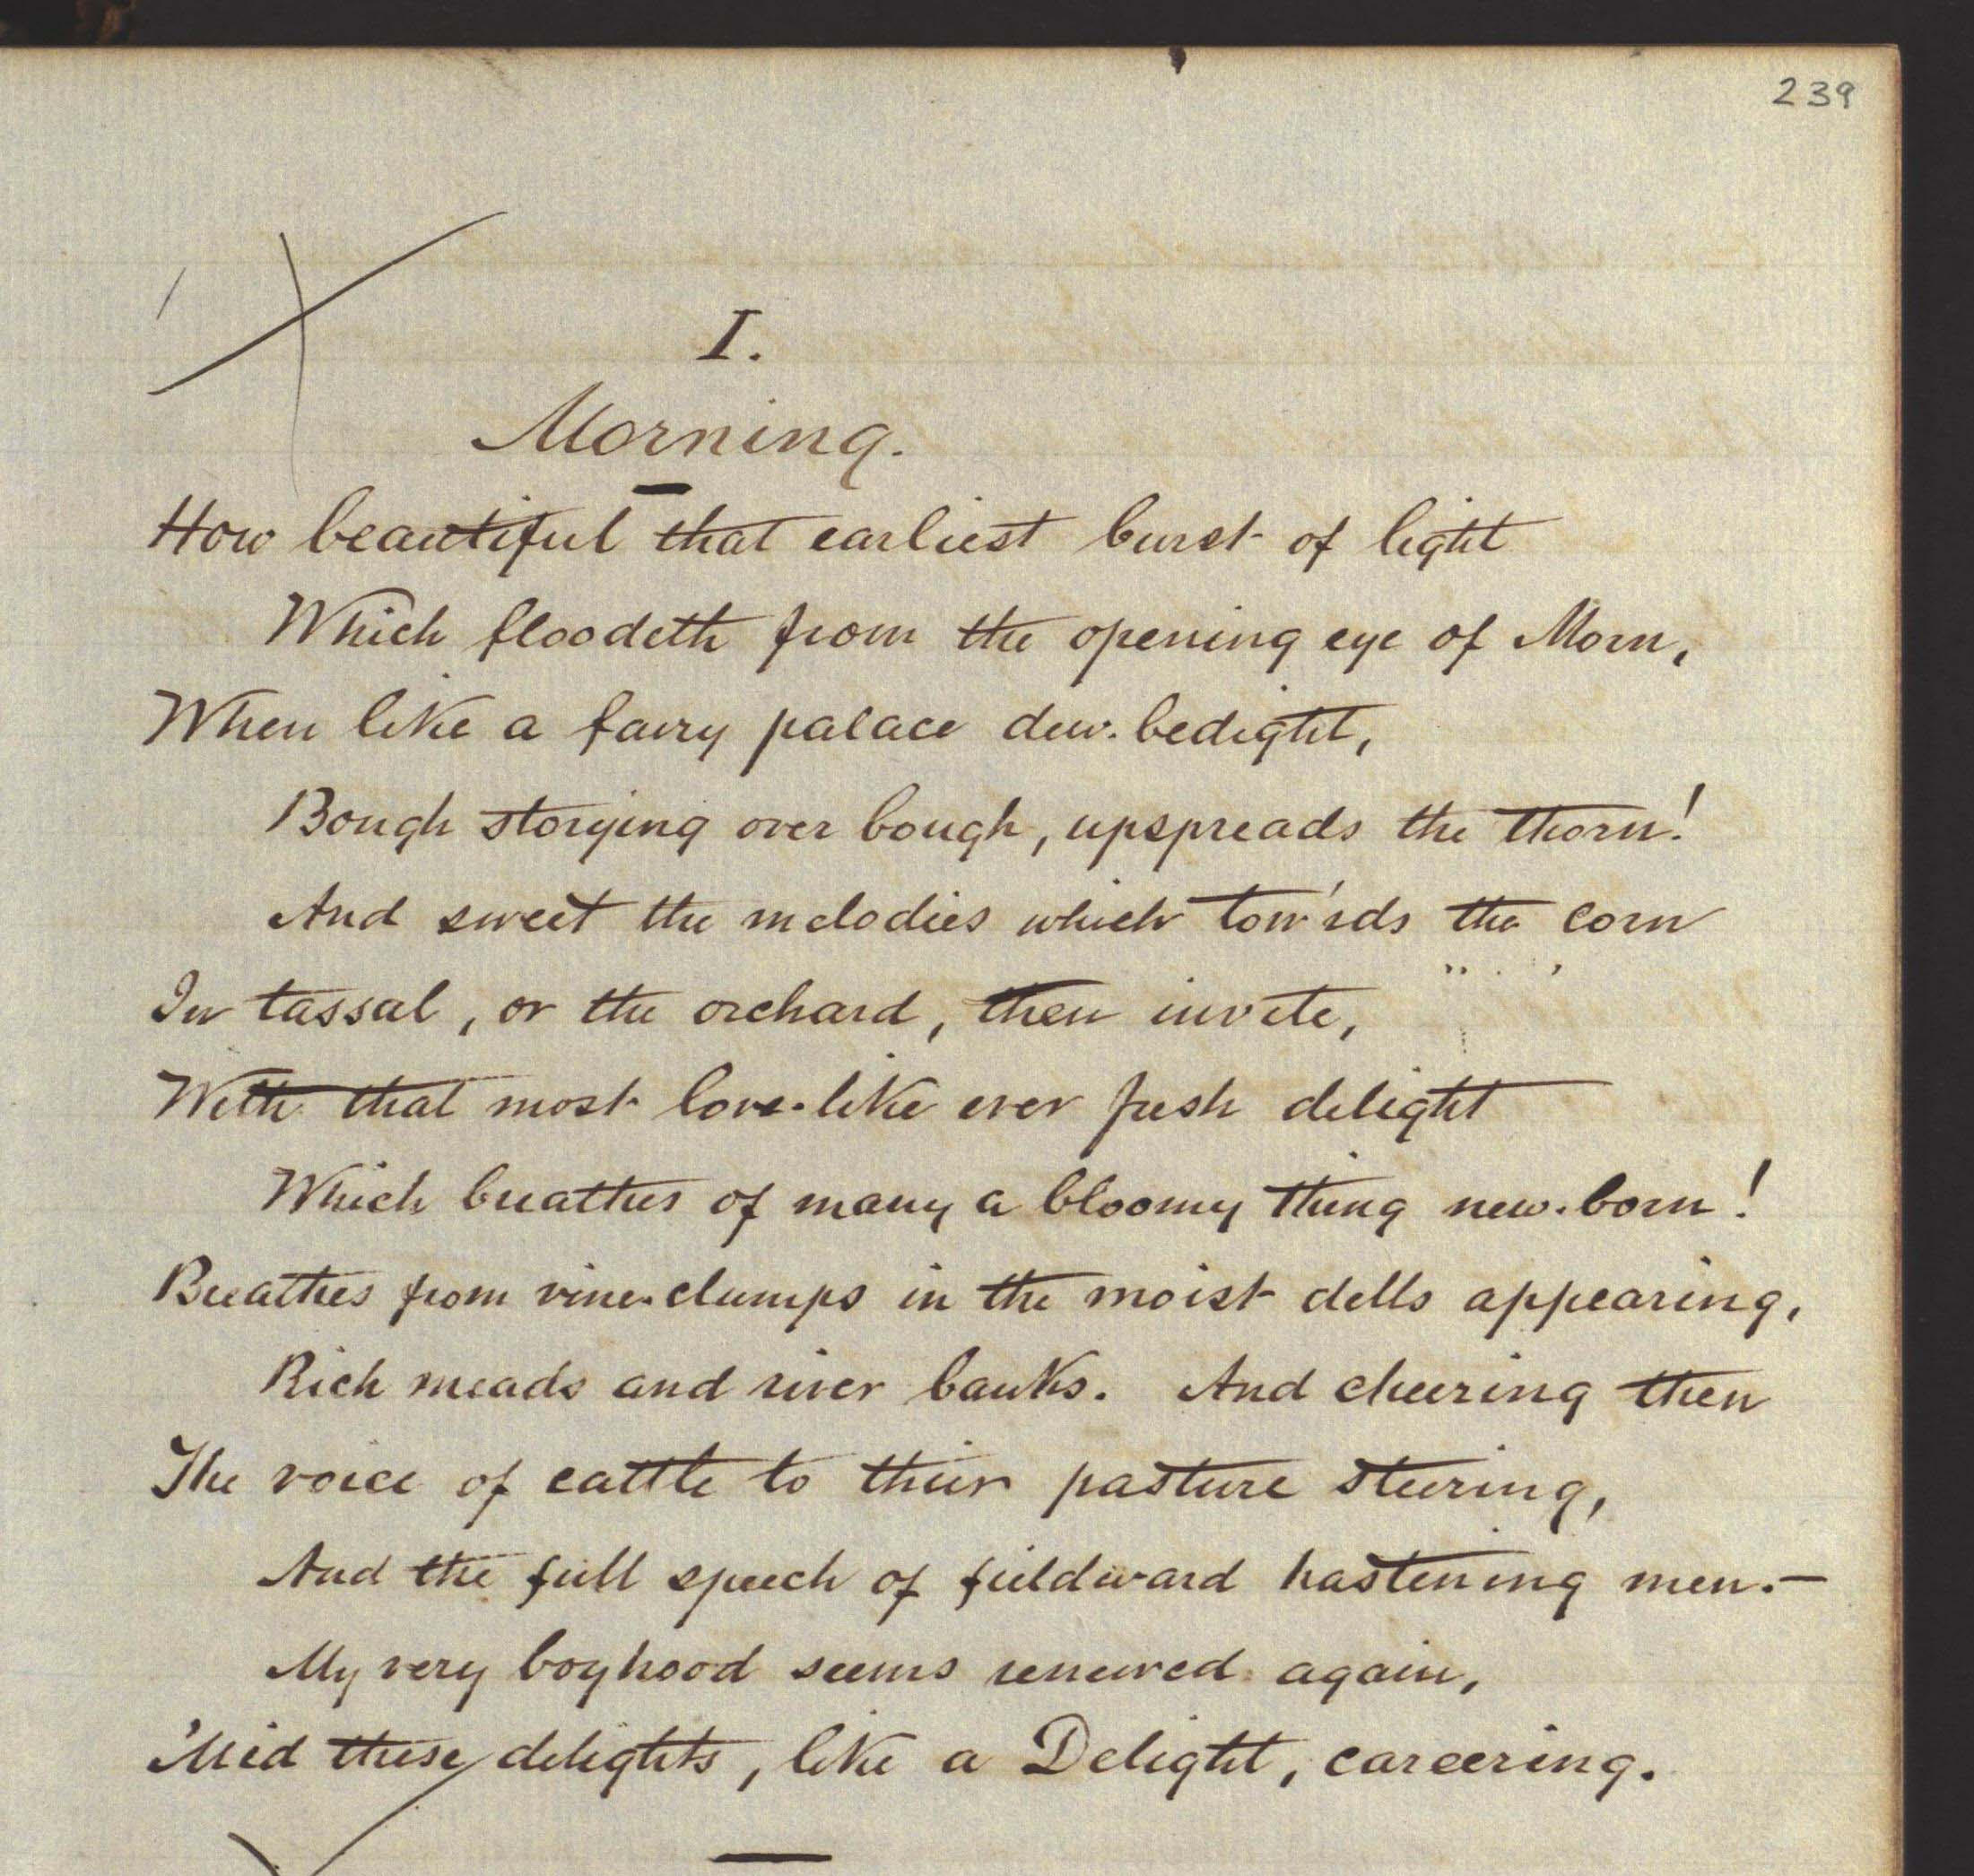 239
I.
Morning.
How beautiful that earliest burst of light
Which floodeth from the opening eye of Morn,
When like a fairy palace dew-bedight,
Bough storying over bough, upspreads the thorn!
And sweet the melodies which tow'rds the corn
In tassal, or the orchard, then invite,
With that most love-like ever fresh delight
Which breathes of many a bloomy thing new-born!
Breathes from vine-clumps in the moist dells appearing,
Rich meads and river banks. And cheering then
The voice of cattle to their pasture steering,
And the full speech of fieldward hastening men.—
My very boyhood seems renewed again,
'Mid these delights, like a Delight, careering.